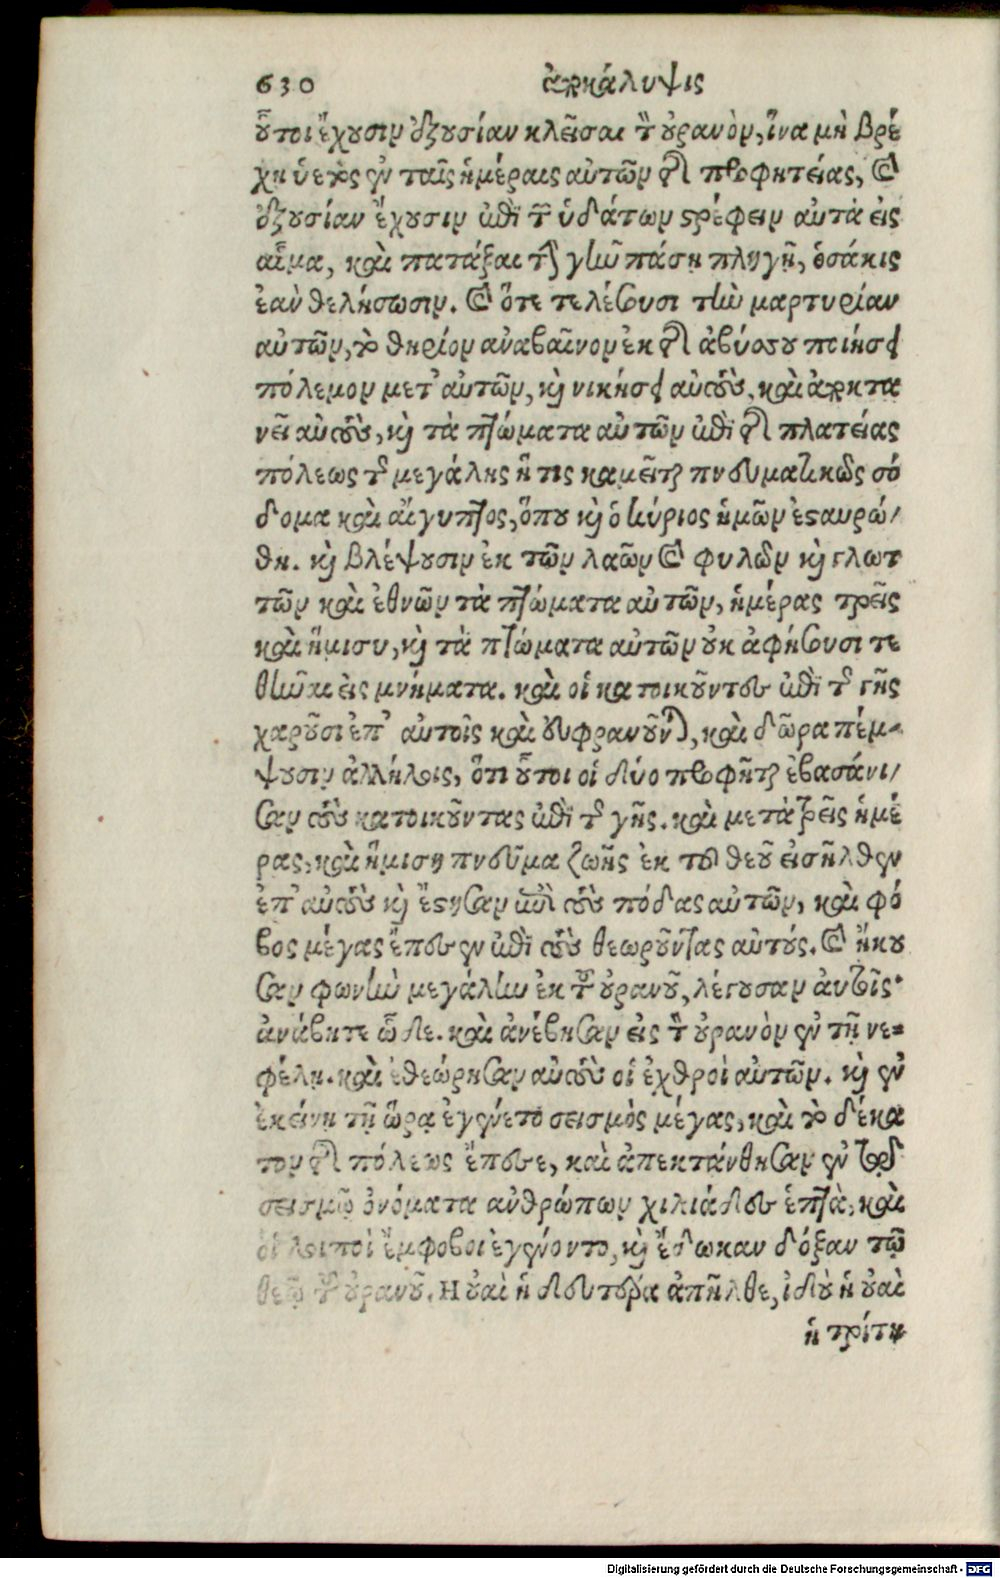 630 ἀποκάλυψις
οὗτοι ἔχουσιν ἐξουσίαν κλεῖσαι τὸν οὐρανὸν, ἵνα μὴ βρέ
χῃ ὑετὸς ἐν ταῖς ἡμέραις αὐτῶν τῆς προφητείας, καὶ
ἐξουσίαν ἔχουσιν ἐπὶ τῶν ὑδάτων στρέφειν αὐτὰ εἰς
αἷμα, καὶ πατάξαι τὴν γῆν πάσῃ πληγῇ, ὁσάκις
ἐὰν θελήσωσιν. καὶ ὅτε τελέσουσι τὴν μαρτυρίαν
αὐτῶν, τὸ θηρίον ἀναβαῖνον ἐκ τῆς ἀβύσσου ποιήσει
πόλεμον μετ᾽ αὐτῶν, καὶ νικήσει αὐτοὺς, καὶ ἀποκτε
νεῖ αὐτοὺς, καὶ τὰ πτώματα αὐτῶν ἐπὶ τῆς πλατείας
πόλεως τῆς μεγάλης ἥτις καλεῖται πνευματικῶς σό
δομα καὶ αἴγυπτος, ὅπου καὶ ὁ κύριος ἡμῶν ἐσταυρώ/
θη. καὶ βλέψουσιν ἐκ τῶν λαῶν καὶ φυλῶν καὶ γλωτ
τῶν καὶ ἐθνῶν τὰ πτώματα αὐτῶν, ἡμέρας τρεῖς
καὶ ἥμισυ, καὶ τὰ πτώματα αὐτῶν οὐκ ἀφήσουσι τε
θῆναι εἰς μνήματα. καὶ οἱ κατοικοῦντες ἐπὶ τῆς γῆς
χαροῦσι ἐπ᾽ αὐτοῖς καὶ εὐφρανοῦνται, καὶ δῶρα πέμ-
ψουσιν ἀλλήλοις, ὅτι οὗτοι οἱ δύο προφῆται ἐβασάνι/
σαν τοὺς κατοικοῦντας ἐπὶ τῆς γῆς. καὶ μετὰ τρεῖς ἡμέ
ρας, καὶ ἥμισυ πνεῦμα ζωῆς ἐκ τοῦ θεοῦ εἰσῆλθεν
ἐπ᾽ αὐτοὺς καὶ ἔστησαν ἐπὶ τοὺς πόδας αὐτῶν, καὶ φό
βος μέγας ἔπεσεν ἐπὶ τοὺς θεωροῦντας αὐτούς. καὶ ἤκου
σαν φωνὴν μεγάλην ἐκ τοῦ οὐρανοῦ, λέγουσαν αὐτοῖς·
ἀνάβητε ὧδε. καὶ ἀνέβησαν εἰς τὸν οὐρανὸν ἐν τῇ νε=
φέλῃ. καὶ ἐθεώρησαν αὐτοὺς οἱ ἐχθροὶ αὐτῶν. καὶ ἐν
ἐκείνῃ τῇ ὥρᾳ ἐγένετο σεισμὸς μέγας, καὶ τὸ δέκα
τον τῆς πόλεως ἔπεσε, καὶ ἀπεκτάνθησαν ἐν τῷ
σεισμῷ ὀνόματα ἀνθρώπων χιλιάδες ἑπτὰ, καὶ
οἱ λοιποὶ ἔμφοβοι ἐγένοντο, καὶ ἔδωκαν δόξαν τῷ
θεῷ τοῦ οὐρανοῦ. Η οὐαὶ ἡ δευτέρα ἀπῆλθε, ἰδοὺ ἡ οὐαὶ
ἡ τρίτη
Digitalisierung gefördert durch die Deutsche Forschungsgemeinschaft - DFG